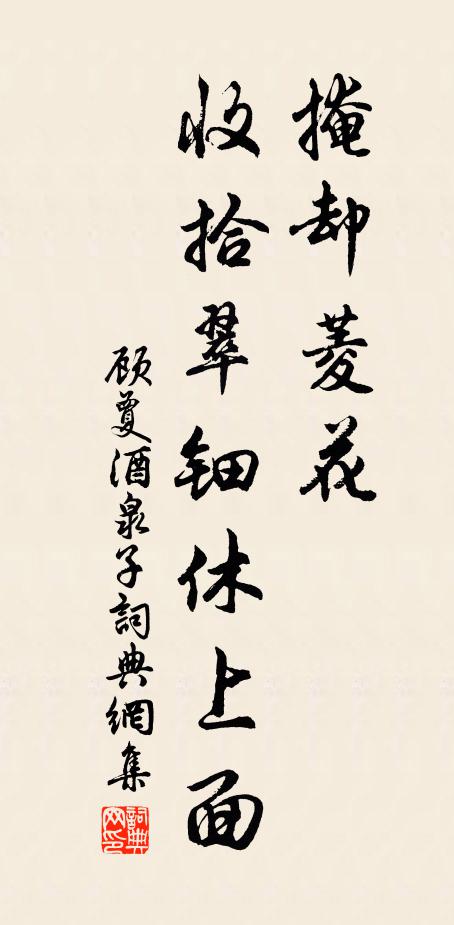 掩却菱花
收拾翠钿休上面
顾敻酒泉子詞典網集
詞典网印